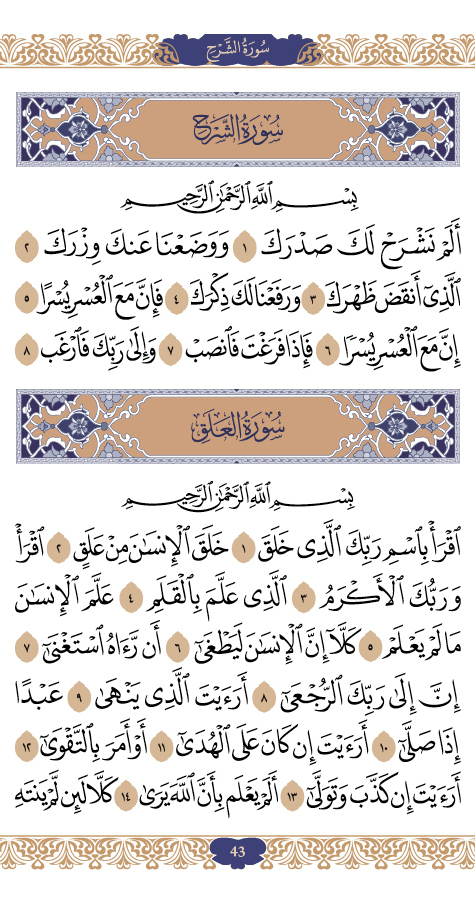 سُورَةُ الشَّرْحِ
سُورَةُ الشَّرْحِ
بِسْمِ اللَّهِ الرَّحْمَٰنِ الرَّحِيمِ
أَلَمْ نَشْرَحْ لَكَ صَدْرَكَ ١ وَوَضَعْنَا عَنكَ وِزْرَكَ ٢
ٱلَّذِىٓ أَنقَضَ ظَهْرَكَ ٣ وَرَفَعْنَا لَكَ ذِكْرَكَ ٤ فَإِنَّ مَعَ ٱلْعُسْرِ يُسْرًا ٥
إِنَّ مَعَ ٱلْعُسْرِ يُسْرًا ٦ فَإِذَا فَرَغْتَ فَٱنصَبْ ٧ وَإِلَىٰ رَبِّكَ فَٱرْغَب ٨
سُورَةُ العَلَقِ
بِسْمِ اللَّهِ الرَّحْمَٰنِ الرَّحِيمِ
ٱقْرَأْ بِٱسْمِ رَبِّكَ ٱلَّذِى خَلَقَ ١ خَلَقَ ٱلْإِنسَٰنَ مِنْ عَلَقٍ ٢ ٱقْرَأْ
وَرَبُّكَ ٱلْأَكْرَمُ ٣ ٱلَّذِى عَلَّمَ بِٱلْقَلَمِ ٤ عَلَّمَ ٱلْإِنسَٰنَ
مَا لَمْ يَعْلَمْ ٥ كَلَّآ إِنَّ ٱلْإِنسَٰنَ لَيَطْغَىٰٓ ٦ أَن رَّءَاهُ ٱسْتَغْنَىٰٓ ٧
إِنَّ إِلَىٰ رَبِّكَ ٱلرُّجْعَىٰٓ ٨ أَرَءَيْتَ ٱلَّذِى يَنْهَىٰ ٩ عَبْدًا
إِذَا صَلَّىٰٓ ١٠ أَرَءَيْتَ إِن كَانَ عَلَى ٱلْهُدَىٰٓ ١١ أَوْ أَمَرَ بِٱلتَّقْوَىٰٓ ١٢
أَرَءَيْتَ إِن كَذَّبَ وَتَوَلَّىٰٓ ١٣ أَلَمْ يَعْلَم بِأَنَّ ٱللَّهَ يَرَىٰ ١٤ كَلَّا لَئِن لَّمْ يَنتَهِ
43